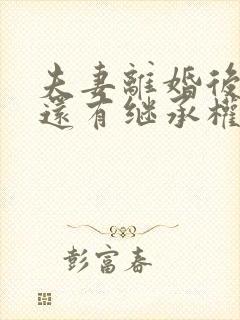 夫妻離婚後
還有继承權
彭富春